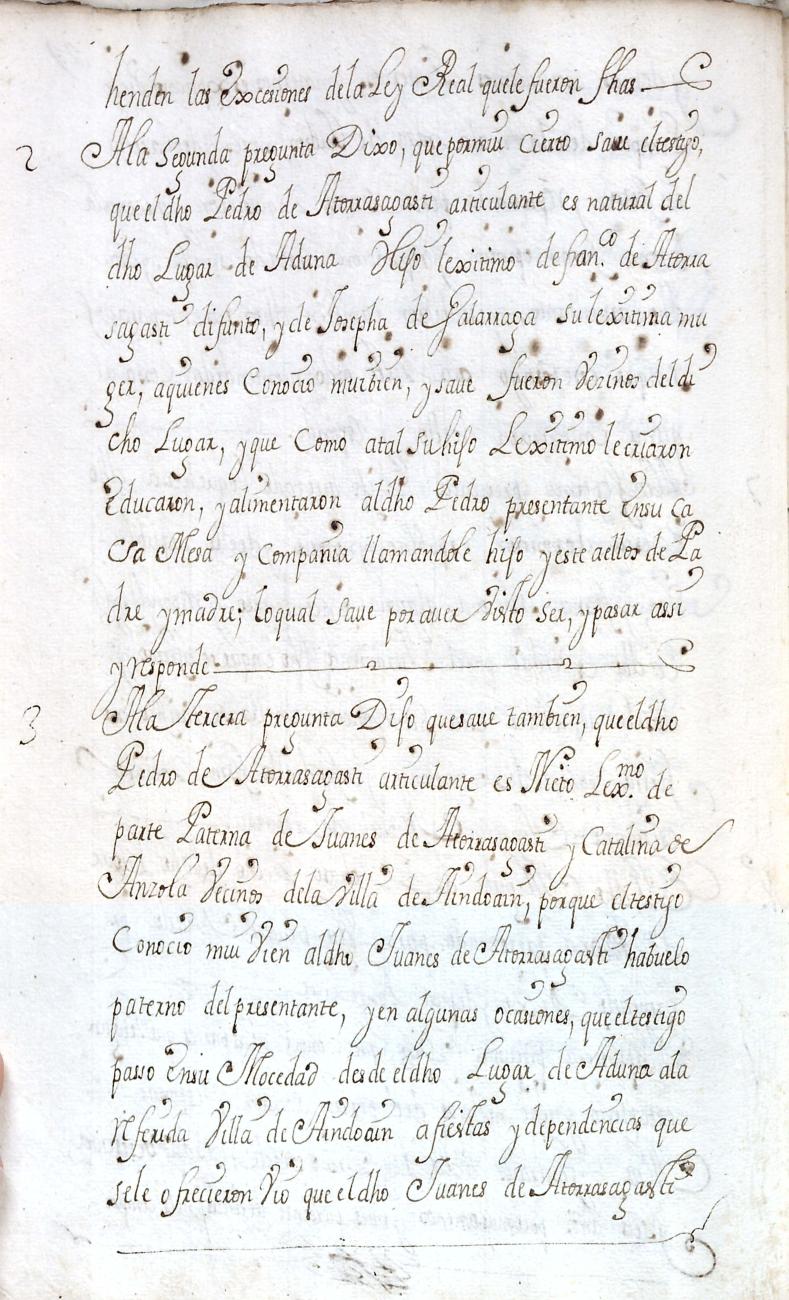 henden las excesiones dela Ley Real quele fueron fhas
2 Ala Segunda pregunta Dixo, que por mui cierto save el testigo,
que el dho Pedro de Atorrasagasti articulante es natural del
dho Lugar de Aduna Hijo lexitimo de fran.co de Atorra
sagasti difunto, y de Josepha de Galarraga su lexitima mu
ger, aquienes Conocio mui bien, y save fueron Vezinos del di
cho Lugar, y que Como atal su hijo Lexitimo le criaron
Educaron, y alimentaron al dho Pedro presentante en su ca
sa Mesa y Compania llamandole hijo y este a ellos de Pa
dre y madre; lo qual save por aver visto ser, y pasar assi
y responde
3 Ala Tercera pregunta Dijo que save tambien, que el dho
Pedro de Atorrasagasti articulante es Nieto Lex.mo de
parte Paterna de Juanes de Atorrasagasti y Catalina de
Anzola Vecinos dela Villa de Aindoain, porque el testigo
Conocio mui Vien al dho Juanes de Atorrasagasti habuelo
paterno del presentante, y en algunas ocasiones, que el testigo
passo en su Mocedad desde el dho Lugar de Aduna ala
referida Villa de Aindoain a fiestas y dependencias que
sele ofrecieron Vio que el dho Juanes de Atorrasagasti